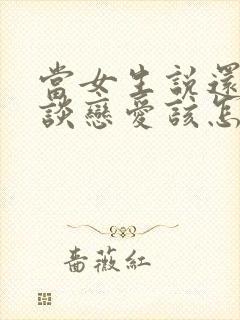 當女生說還
談戀愛該怎
薔薇紅